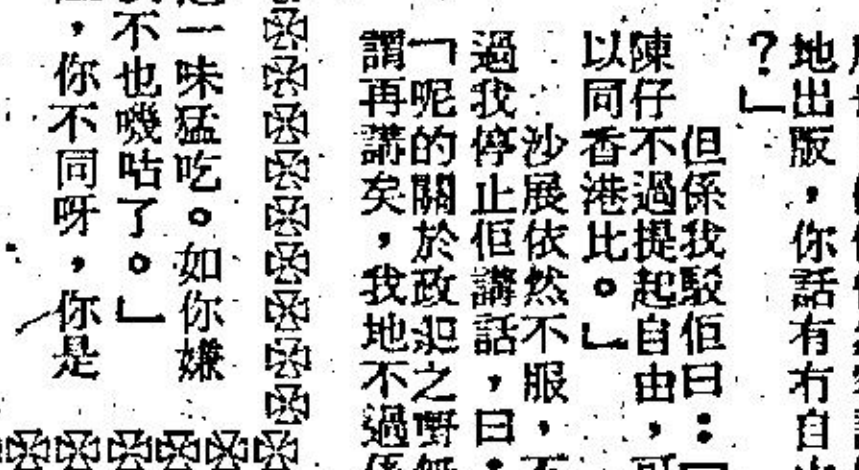 地出版，你話有冇自
？」
但係我駁佢曰：「
陳仔不過提起自由，可
以同香港比。」
沙展依然不服，不
過我停止佢講話，曰：
「呢的關於政犯之嘢無
謂再講矣，我地不過係
一味猛吃。如你嫌
不也嘰咕了。」
，你不同呀，你是